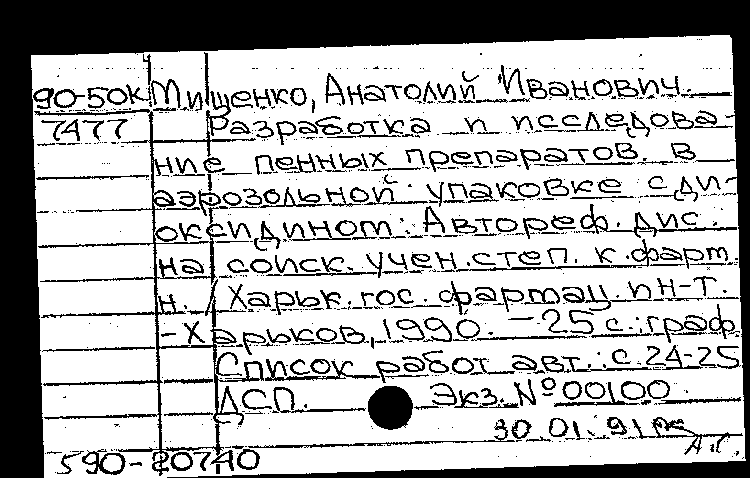 90-50к Мищенко, Анатолий Иванович.
7477 Разработка и исследова-
ние пенных препаратов в
аэрозольной упаковке с ди-
оксидином: Автореф. дис.
на соиск. учен. степ. к. фарм.
н. / Харьк. гос. фармац. ин-т.
-Харьков, 1990. - 25 с.: граф.
Список работ авт.: с. 24-25
ДСП. Экз. № 00100.
30.01.91
590-20740